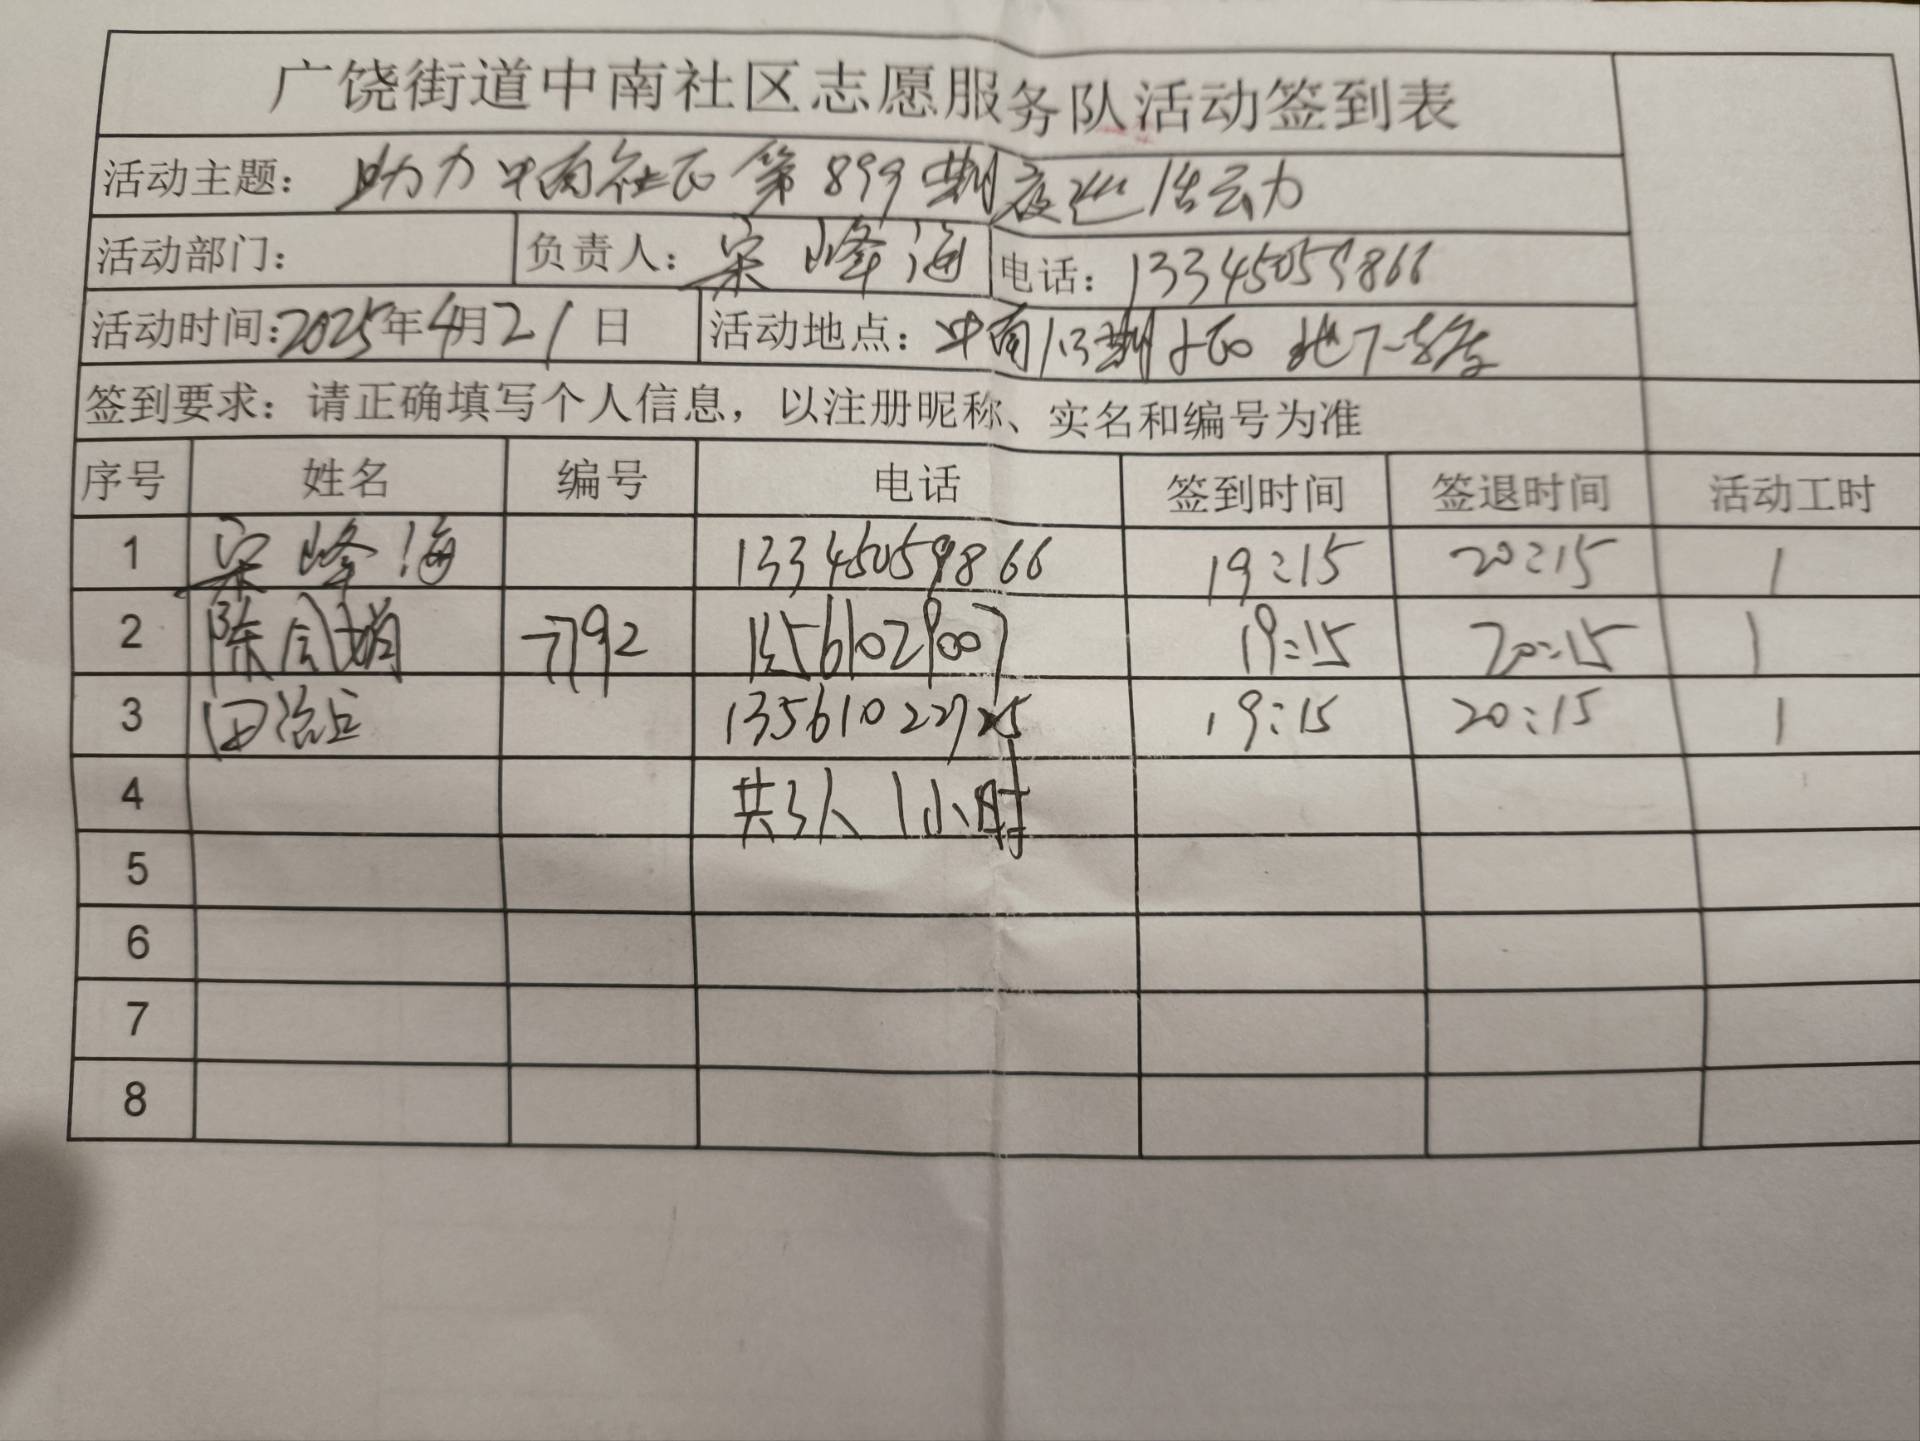 广饶街道中南社区志愿服务队活动签到表
活动主题：助力中南社区第899期夜巡活动
活动部门： 负责人：宋峰海 电话：13345059866
活动时间：2025年4月21日 活动地点：中南1.3期小区 地下
签到要求：请正确填写个人信息，以注册昵称、实名和编号为准
序号 姓名 编号 电话 签到时间 签退时间 活动工时
1 宋峰海 13345059866 19:15 20:15 1
2 陈凤娟 7792 19:15 20:15 1
3 田治兵 19:15 20:15 1
4 共3人 1小时
5
6
7
8